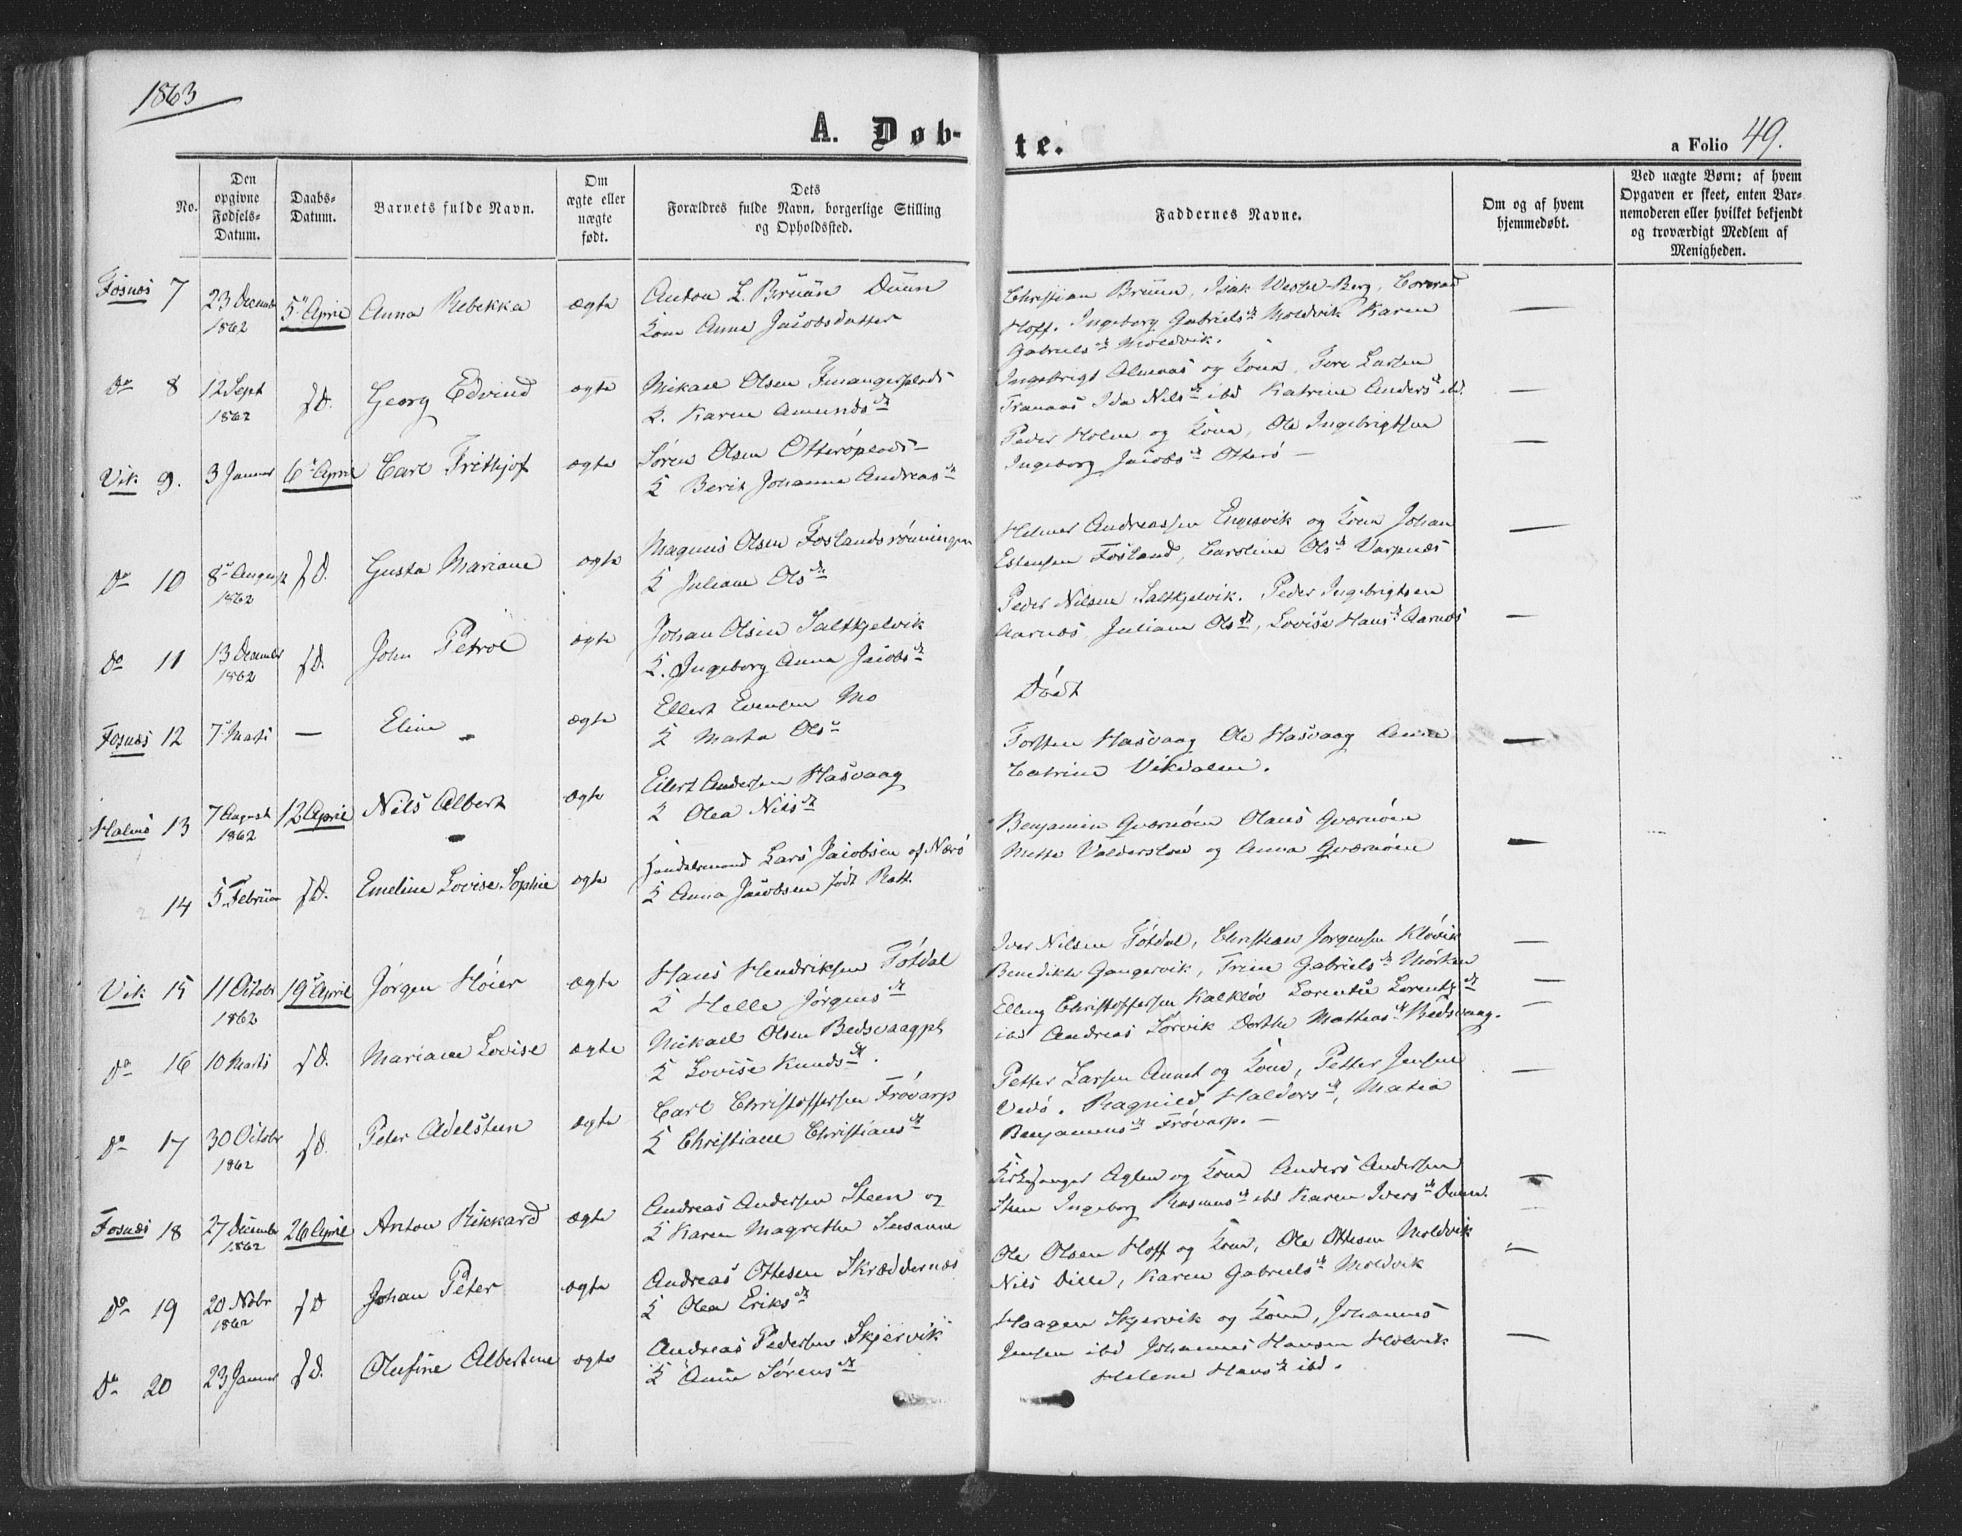 1863
A. Døb-
te.
a Folio 49.
No.
Den opgivne Fødsels-Datum.
Daabs-Datum.
Barnets fulde Navn.
Om ægte eller uægte født.
Dets Forældres fulde Navn, borgerlige Stilling og Opholdssted.
Faddernes Navne.
Om og af hvem hjemmedøbt.
Ved uægte Børn: af hvem Opgaven er skeet, enten Barnemoderen eller hvilket bekjendt og troværdigt Medlem af Menigheden.
Fosnæs 7 23 Decemb 1862 5te April Anna Rebekka ægte
Anton L. Bruun Duun
Kone Anne Jacobsdatter
Christian Bruun, Isak Berg,
Hoff. Ingeborg Gabrielsdt Moldvik Karen
Gabrielsdt Moldvik. —
Do 8 12 Sept 1862 s.D. Georg Edvind ægte
Mikael Olsen
K. Karen Amundsdt
Ingebrigt Almaas og Kone, Tore Larsen
Tranaas Ida Nilsdt ibd Katrine Andersdt ibd. —
Vik 9. 3 Januar 6te April Carl Frithjof ægte
Søren Olsen Otterøplads
K Berit Johanna Andreasdt
Peder Holm og Kone, Ole Ingebrigtsen
Ingeborg Jacobsdt Otterø — —
Do 10 8de August 1862 s.D. Gusta Mariane ægte
Magnus Olsen Foslandsrønningen
K Juliane Olsdt
Helmer Andreassen Engesvik og Kone Johan
Estensen Fosland, Caroline Olsdt Varpnæs —
Do 11 13 December 1862 s.D. John Petrol ægte
Johan Olsen Saltkjelvik
K. Ingeborg Anna Jacobsdt
Peder Nilsen Saltkjelvik. Peder Ingebrigtsen
Aarnæs, Juliane Olsdt, Lovise Hansdt Aarnæs —
Fosnæs 12 7 Marts — Eline ægte
Ellert Evensen Mo
K Marta Olsdt
Dödt
Halmö 13 7 August 1862 12 April Nils Albert ægte
Eilert Andersen Hasvaag
K Olea Nilsdt
Torsten Hasvaag Ole Hasvaag Anne
Catrine Vikdalen. —
14 5 Februar s.D. Emeline Lovise Sophie ægte
Handelsmand Lars Jacobsen af Nærö
K Anna Jacobsen født Ratt.
Benjamin Qværnöen Olaus Qværnöen
Mette og Anna Qværnöen —
Vik 15 11 Octobr 1862 19de April Jørgen Høier ægte
Hans Hendriksen Fötdal
K Helle Jørgensdt
Iver Nilsen Fötdal, Christian Jørgensen Klövik
Benedikte Gangervik, Trine Gabrielsdt —
Do 16 10 Marts s.D. Mariane Lovise ægte
Mikael Olsen Bedsvaagpl
K Lovise Knudsdt.
Elling Christoffersen Kalklöv Lorentse Lorentsdt
ibd Andreas Sørvik Dorthe Mathiasdt Bedsvaag. —
Do 17 30 Octobr 1862 s.D. Peter Adelsteen ægte
Carl Christoffersen Frövarp
K Christiane Christiansdt
Petter Larsen og Kone, Petter Jensen
Vedö. Ragnild Haldorsdt, Matea
Benjaminsdt Frövarp. — —
Fosnæs 18 27 Decembr 1862 26 April Anton Rikkard ægte
Andreas Andersen Steen og
K Karen Magrethe Susanne
Kirkesanger Aglen og Kone Anders Andersen
Steen Ingeborg Rasmusdt ibd Karen Iversdt Duun. —
Do 19 20 Nobr 1862 s.D Johan Peter ægte
Andreas Ottesen Skræddernæs
K Olea Eriksdt
Ole Olsen Hoff og Kone, Ole Ottesen Moldvik
Nils Dille, Karen Gabrielsdt Moldvik —
Do 20 23 Januar s.D. Olufine Albertine ægte
Andreas Pedersen Skjervik
K Anne Sørensdt
Haagen Skjervik og Kone, Johannes
Jensen ibd Johannes Hansen Holvik
Helene Hansdt ibd. —